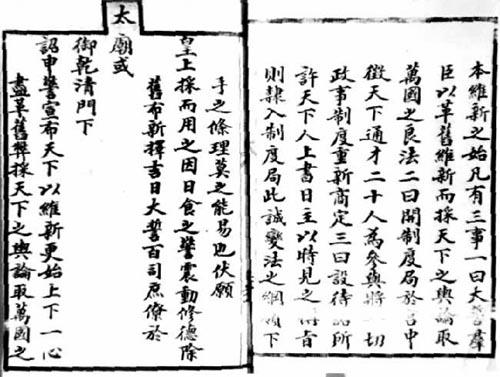 本維新之始凡有三事一曰大誓羣
臣以革舊維新而採天下之輿論取
萬國之良法二曰開制度局於宮中
徵天下通才二十人為參與將一切
政事制度重新商定三曰設待詔所
許天下人上書日主以時見之
則隸入制度局此誠變法之綱領下
手之條理莫之能易也伏願
皇上採而用之因日食之警震動修德除
舊布新擇吉日大誓百司庶僚於
太廟或
御乾清門下
詔申警宣布天下以維新更始上下一心
盡革舊弊採天下之輿論取萬國之